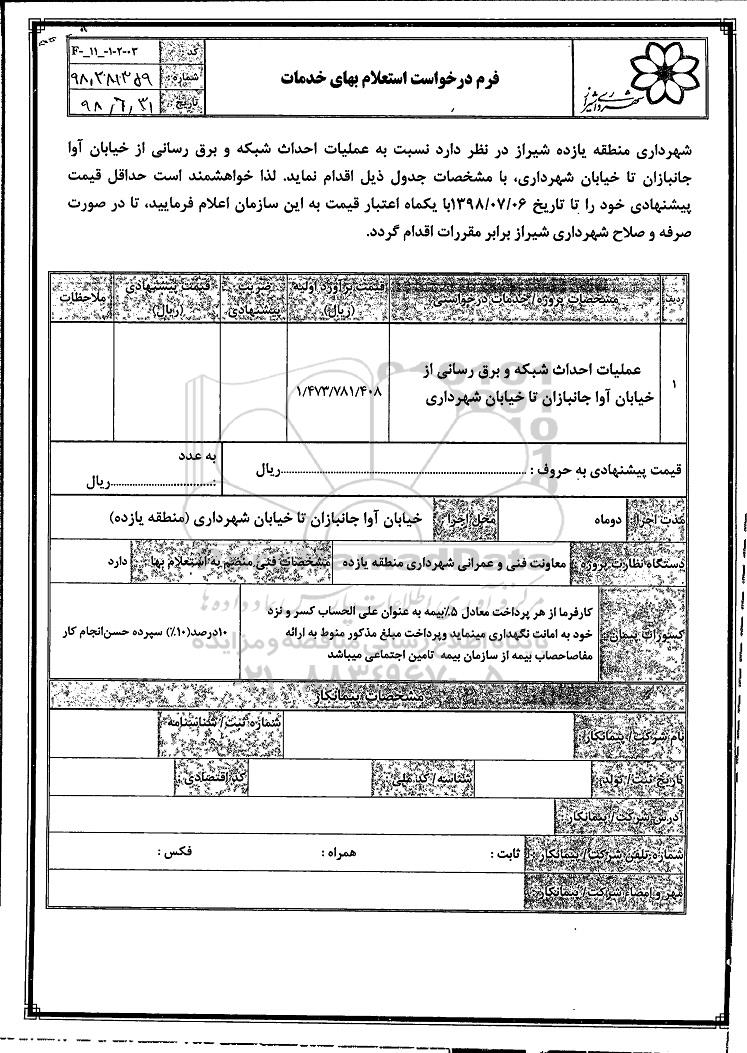 شهرداری شیراز
فرم درخواست استعلام بهای خدمات
کد: F-_11_-۱-۲-۰۳
شماره:
تاریخ: ۹۸/۶/۳۱
شهرداری منطقه یازده شیراز در نظر دارد نسبت به عملیات احداث شبکه و برق رسانی از خیابان آوا
جانبازان تا خیابان شهرداری، با مشخصات جدول ذیل اقدام نماید. لذا خواهشمند است حداقل قیمت
پیشنهادی خود را تا تاریخ ۱۳۹۸/۰۷/۰۶با یکماه اعتبار قیمت به این سازمان اعلام فرمایید، تا در صورت
صرفه و صلاح شهرداری شیراز برابر مقررات اقدام گردد.
ردیف مشخصات پروژه/خدمات درخواستی قیمت برآورد اولیه (ریال) ضریب پیشنهادی قیمت پیشنهادی (ریال) ملاحظات
۱ عملیات احداث شبکه و برق رسانی از ۱/۴۷۳/۷۸۱/۴۰۸
خیابان آوا جانبازان تا خیابان شهرداری
قیمت پیشنهادی به حروف : ........ریال به عدد
:........ریال
مدت اجرا دوماه محل اجرا خیابان آوا جانبازان تا خیابان شهرداری (منطقه یازده)
دستگاه نظارت پروژه معاونت فنی و عمرانی شهرداری منطقه یازده مشخصات فنی منضم به استعلام بها دارد
کسورات پیمان کارفرما از هر پرداخت معادل ۵٪بیمه به عنوان علی الحساب کسر و نزد
خود به امانت نگهداری مینماید وپرداخت مبلغ مذکور منوط به ارائه
مفاصاحصاب بیمه از سازمان بیمه تامین اجتماعی میباشد
۱۰درصد(۱۰٪) سپرده حسن‌انجام کار
مشخصات پیمانکار
نام شرکت/ پیمانکار: شماره ثبت/ شناسنامه
تاریخ ثبت/ تولد: شناسه/ کد ملی کد اقتصادی :
آدرس شرکت/ پیمانکار:
شماره تلفن شرکت/ پیمانکار : ثابت : همراه : فکس :
مهر و امضا شرکت/ پیمانکار:
۰۲۱-۸۸۳۴۹۶۷۰-۵